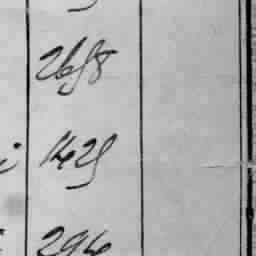 2658
i 1425
294